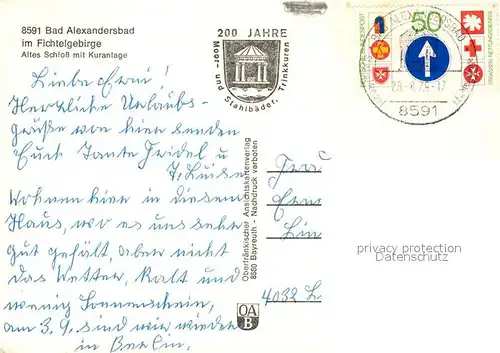 8591 Bad Alexandersbad
im Fichtelgebirge
Altes Schloß mit Kuranlage
200 JAHRE
Moor- und Stahlbäder, Trinkkuren
50
8591
Liebe Erni!
Herzliche Urlaubs-
grüße von hier senden
Euch Tante Friedel u
T. Luise
Wohnen hier in diesem
Haus, wo es uns sehr
gut gefällt, aber nicht
das Wetter, kalt und
wenig Sonnenschein,
am 3.9. sind wir wieder
in Berlin.
Oberfränkischer Ansichtskartenverlag
8580 Bayreuth - Nachdruck verboten
OA
B
4032 L
privacy protection
Datenschutz